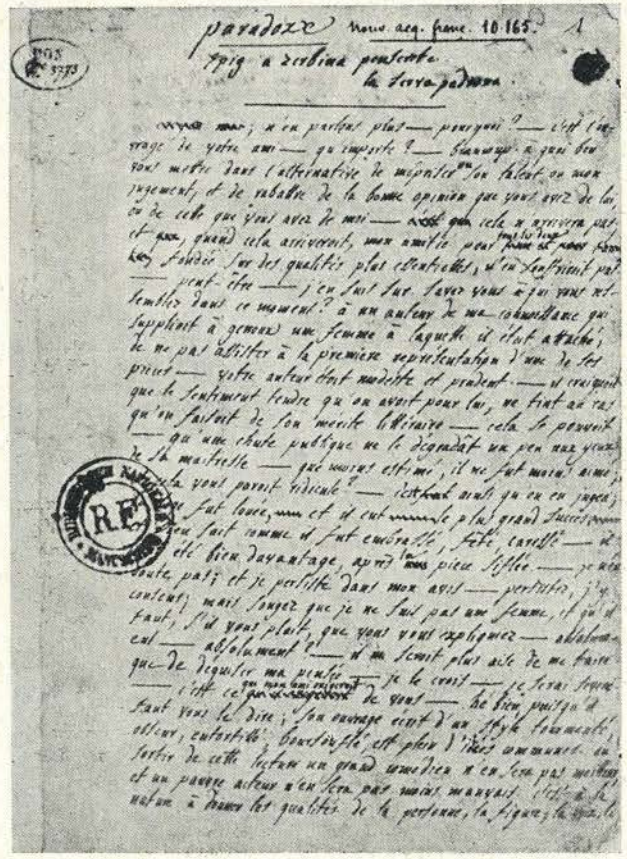 paradoxe Nouv. acq. franç. 10.165. 1
DON
3773
Epig a zerbina penserete
la serva padrona.
n'en parlons plus — pourquoi? — c'est l'ou-
vrage de votre ami — qu'importe? — beaucoup. a quoi bon
vous mettre dans l'alternative de mépriser ou son talent ou mon
jugement, et de rabattre de la bonne opinion que vous avez de lui,
ou de celle que vous avez de moi — cela n'arrivera pas
et quand cela arriveroit, mon amitié pour tous les deux
fondée sur des qualités plus essentielles, n'en souffriroit pas
— peut-être — j'en suis sur. savez vous à qui vous res-
semblez dans ce moment? à un auteur de ma connoissance qui
supplioit à genoux une femme à laquelle il étoit attaché,
de ne pas assister à la premiere representation d'une de ses
pieces — votre auteur étoit modeste et prudent — il craignoit
que le sentiment tendre qu'on avoit pour lui, ne tint au cas
qu'on faisoit de son merite littéraire — cela se pouvoit
— qu'une chute publique ne le dégradât un peu aux yeux
de sa maitresse — que moins estimé, il ne fut moins aimé,
la vous paroit ridicule? — c'est ainsi qu'on en jugea,
fut louée, et il eut le plus grand succès
sait comme il fut embrassé, fêté caressé — il
été bien davantage, après la piece sifflée — je n'en
doute pas; et je persiste dans mon avis — persistez, j'y
consens; mais songez que je ne suis pas une femme, et qu'il
faut, s'il vous plait, que vous vous expliquiez — absolum-
ent — absolument? — il me seroit plus aisé de me taire
que de déguiser ma pensée — je le crois — je serai sévere
— c'est ce que mon ami exigeroit de vous — hé bien puisqu'il
faut vous le dire; son ouvrage écrit d'un style tourmenté,
obscur, entortillé, boursouflé, est plein d'idées communes. au
sortir de cette lecture un grand comedien n'en sera pas meilleur
et un pauvre acteur n'en sera pas moins mauvais. c'est à la
nature à donner les qualités de la personne, la figure, la voix, le
BIBLIOTHEQUE NATIONALE
R.F.